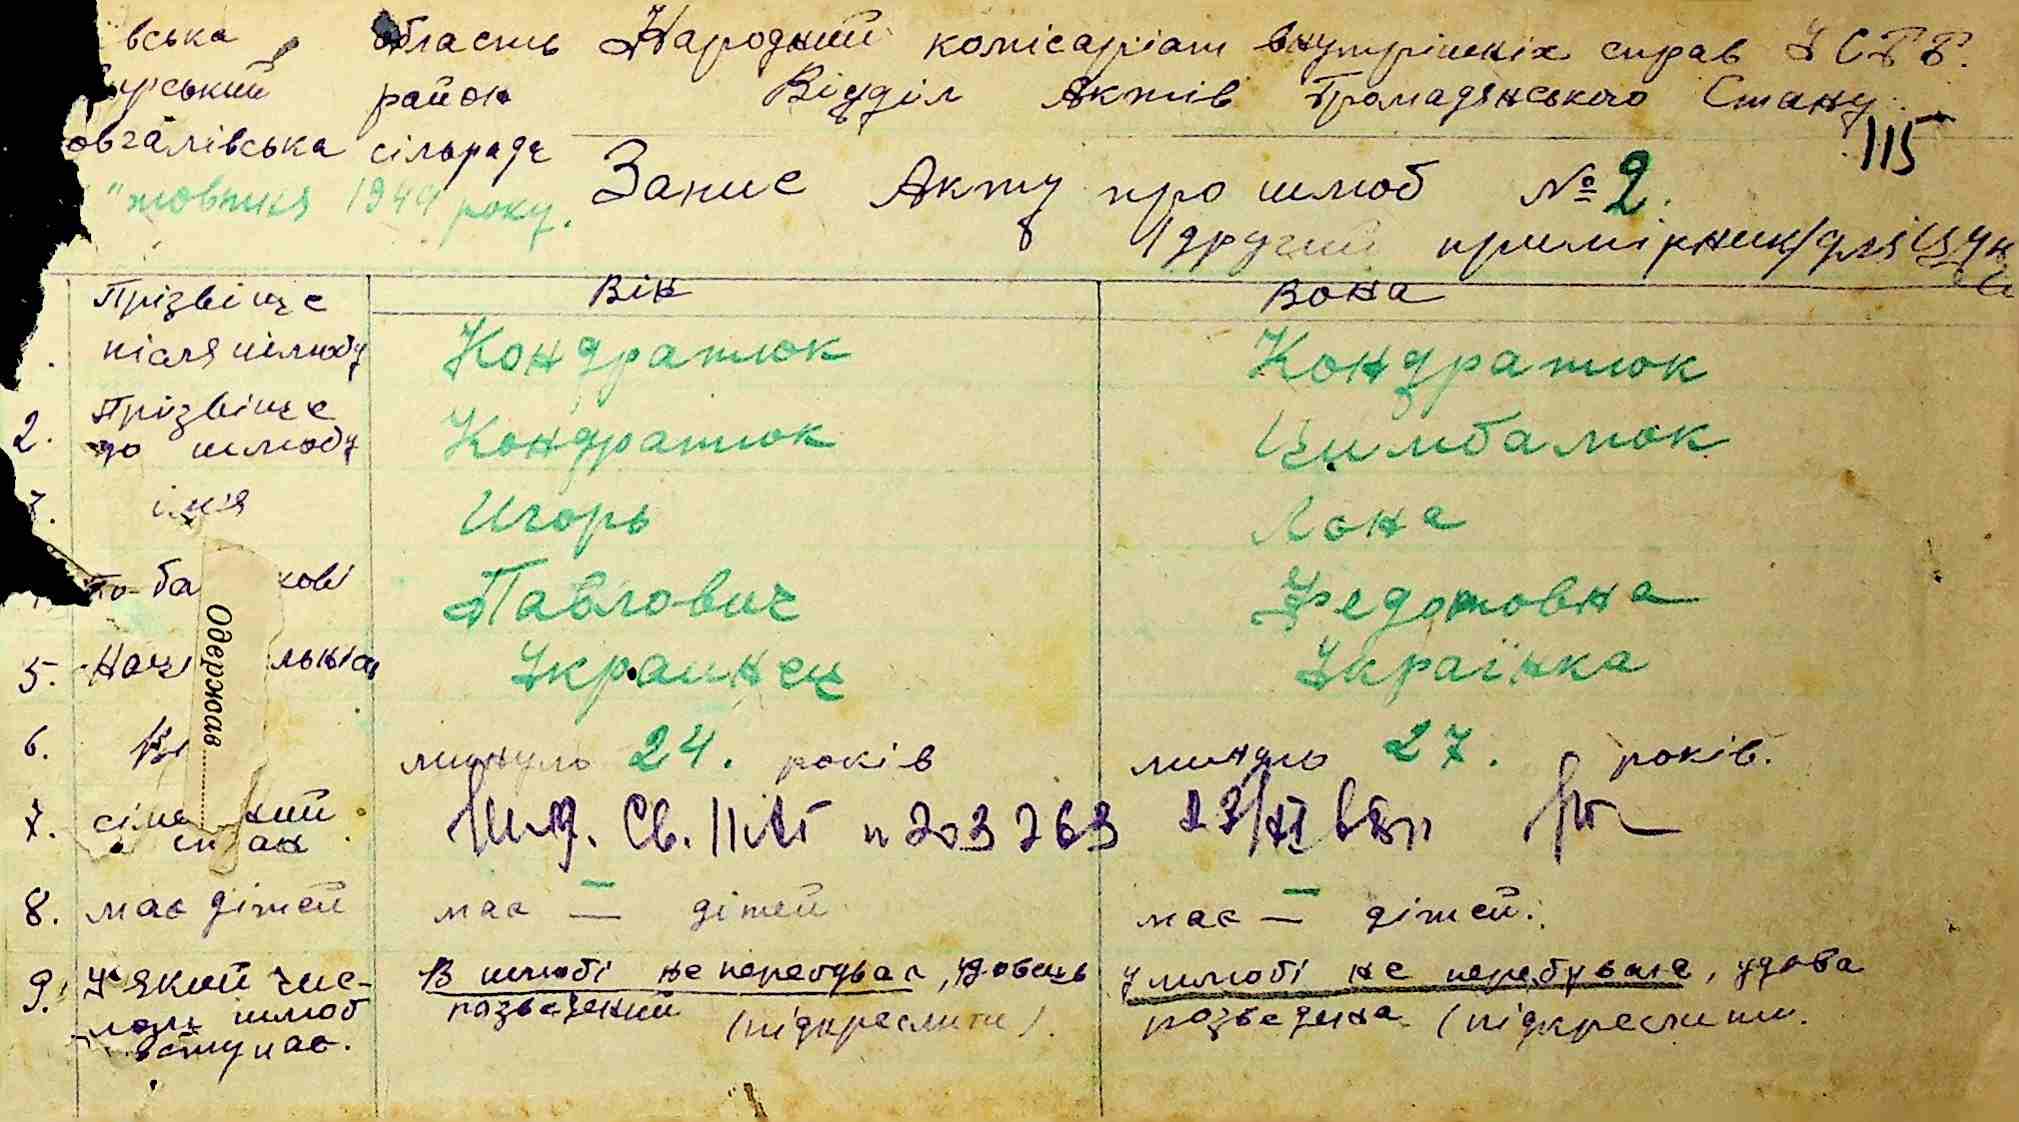 вська область Народний комісаріат внутрішніх справ УСРР.
урський район Відділ Актів Громадянського Стану.
овгалівська сільрада
115
"жовтня 1944 року. Запис Акту про шлюб № 2.
/другий примірник/для
Він Вона
Прізвище
після шлюбу Кондратюк Кондратюк
2. Прізвище
до шлюбу Кондратюк Цимбалюк
ім'я Игорь Лона
По-ба кові Павлович Федотовна
5. Наці льніс Украинец Українка
6. минуло 24. років минуло 27. років.
7. сіме ний
стан
св. II № 203763 23/XI
8. має дітей має — дітей має — дітей.
9. У який чис- В шлюбі не перебував, удовець У шлюбі не перебувала, удова
лом шлюб розведений (підкреслити). розведена (підкреслити.
вступає.
Одержав